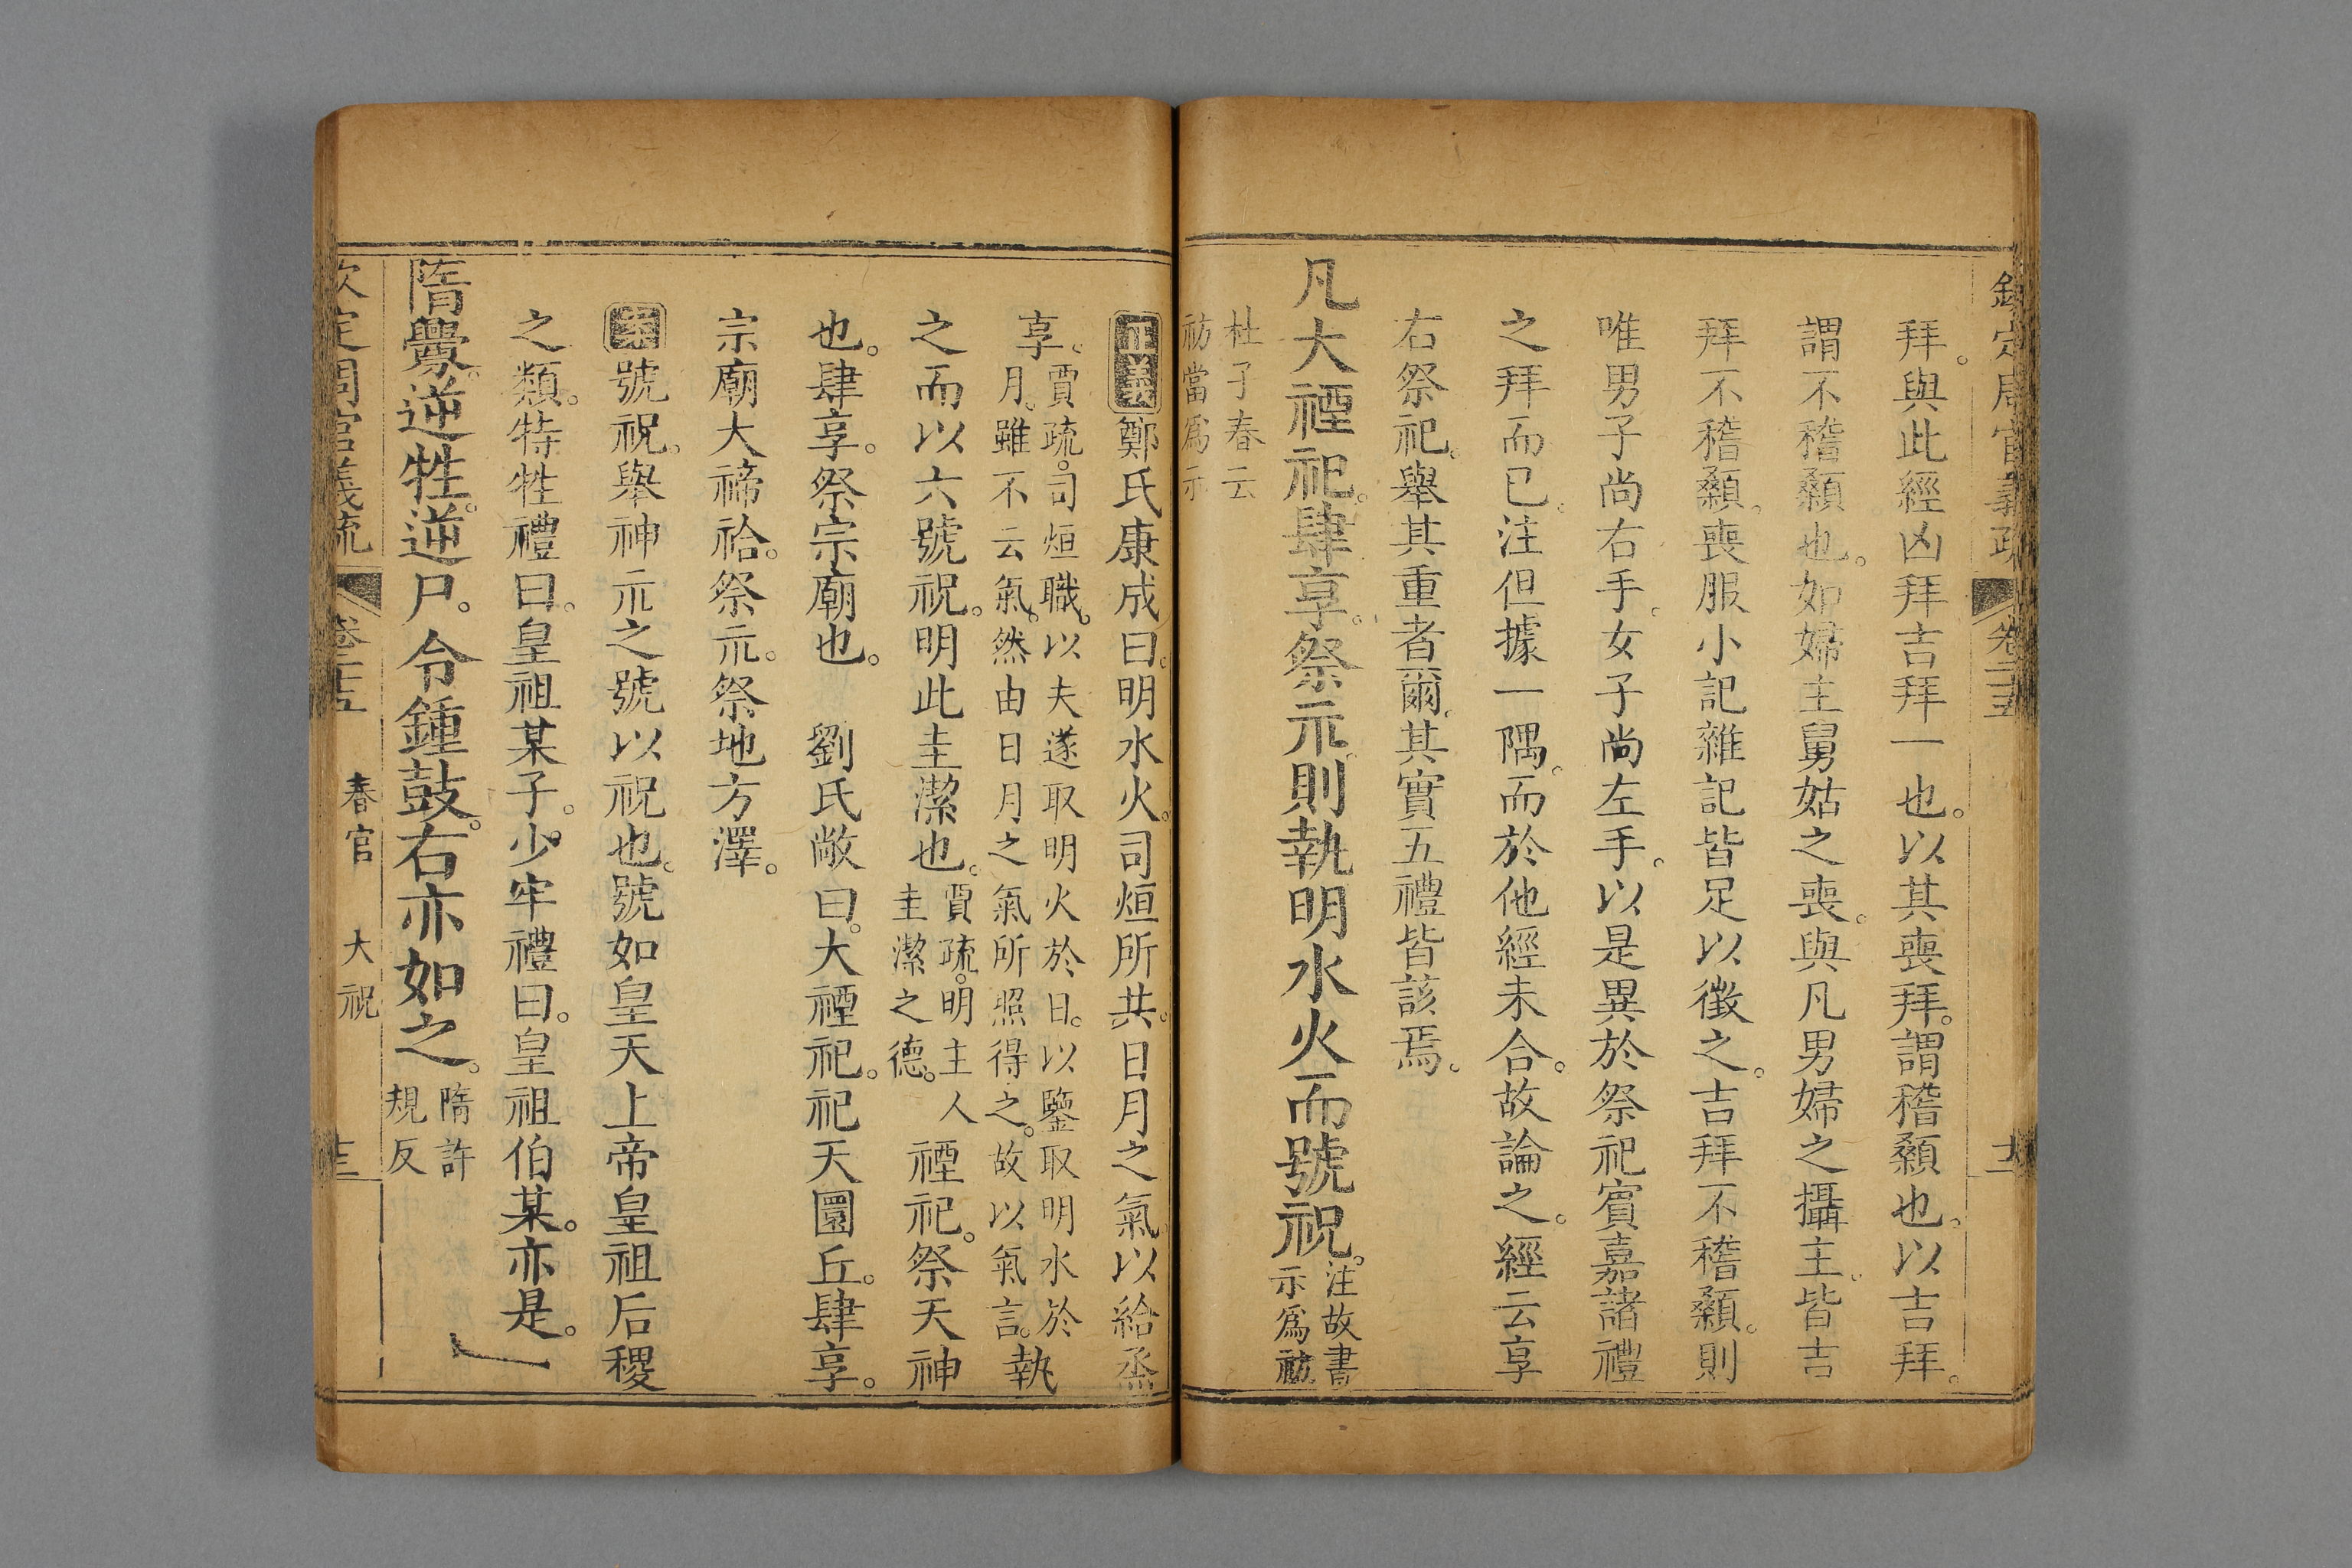 欽定周官義疏 卷二十五
拜。與此經凶拜吉拜一也。以其喪拜。謂稽顙也。以吉拜。
謂不稽顙也。如婦主舅姑之喪。與凡男婦之攝主。皆吉
拜不稽顙。喪服小記雜記皆足以徵之。吉拜不稽顙。則
唯男子尚右手。女子尚左手。以是異於祭祀賓嘉諸禮
之拜而已。注但據一隅。而於他經未合。故論之。經云享
右祭祀。舉其重者爾。其實五禮皆該焉。
凡大禋祀。肆享。祭示。則執明水火而號祝。注故書
示爲祊
杜子春云
祊當爲示
正義鄭氏康成曰。明水火。司烜所共。日月之氣。以給烝
享。賈疏。司烜職。以夫遂取明火於日。以鑒取明水於
月。雖不云氣。然由日月之氣所照得之。故以氣言。執
之而以六號祝。明此圭潔也。賈疏。明主人
圭潔之德。禋祀。祭天神
也。肆享。祭宗廟也。 劉氏敞曰。大禋祀。祀天圜丘。肆享。
宗廟大禘祫。祭示。祭地方澤。
號祝。舉神示之號以祝也。號如皇天上帝皇祖后稷
之類。特牲禮曰。皇祖某子。少牢禮曰。皇祖伯某。亦是。
隋釁。逆牲。逆尸。令鍾鼓。右亦如之。隋許
規反
欽定周官義疏 卷二十五 春官 大祝 十三